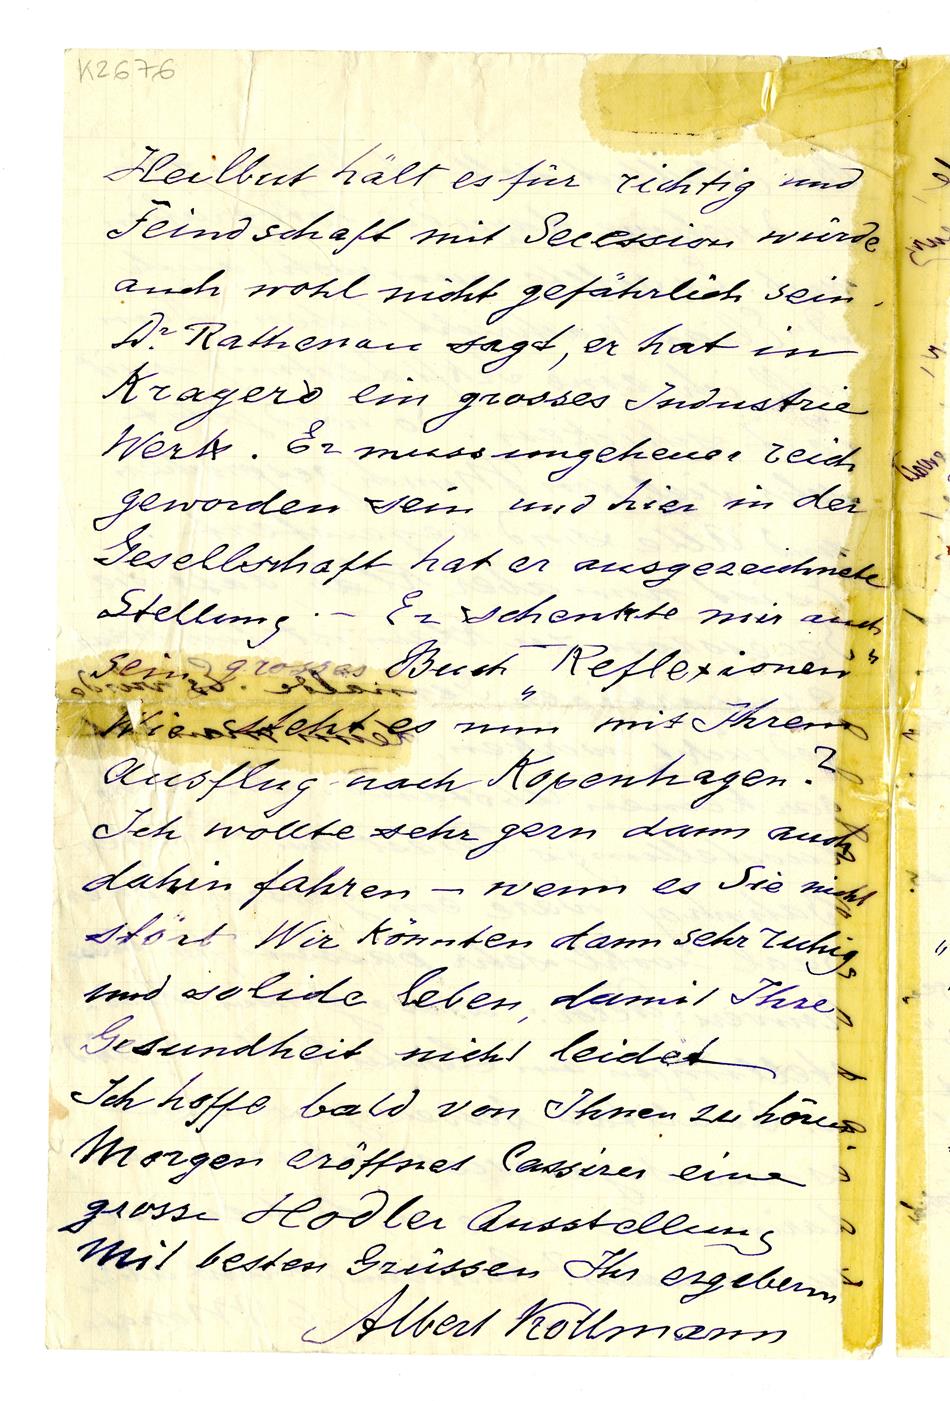 K2676
Heilbut hält es für richtig und
Feindschaft mit Secession würde
auch wohl nicht gefährlich sein.
Dr. Rathenau sagt, er hat in
Kragerö ein grosses Industrie
Werk. Er muss ungeheuer reich
geworden sein und hier in der
Gesellschaft hat er ausgezeichnete
Stellung. – Er schenkte mir auch
sein grosses Buch „Reflexionen“
Wie steht es nun mit Ihrem
Ausflug nach Kopenhagen?
Ich wollte sehr gern dann auch
dahin fahren – wenn es Sie nicht
stört Wir könnten dann sehr ruhig
und solide leben, damit Ihre
Gesundheit nicht leidet
Ich hoffe bald von Ihnen zu hören
Morgen eröffnet Cassirer eine
grosse Hodler Ausstellung
Mit besten Grüssen Ihr ergebenn
Albert Kollmann